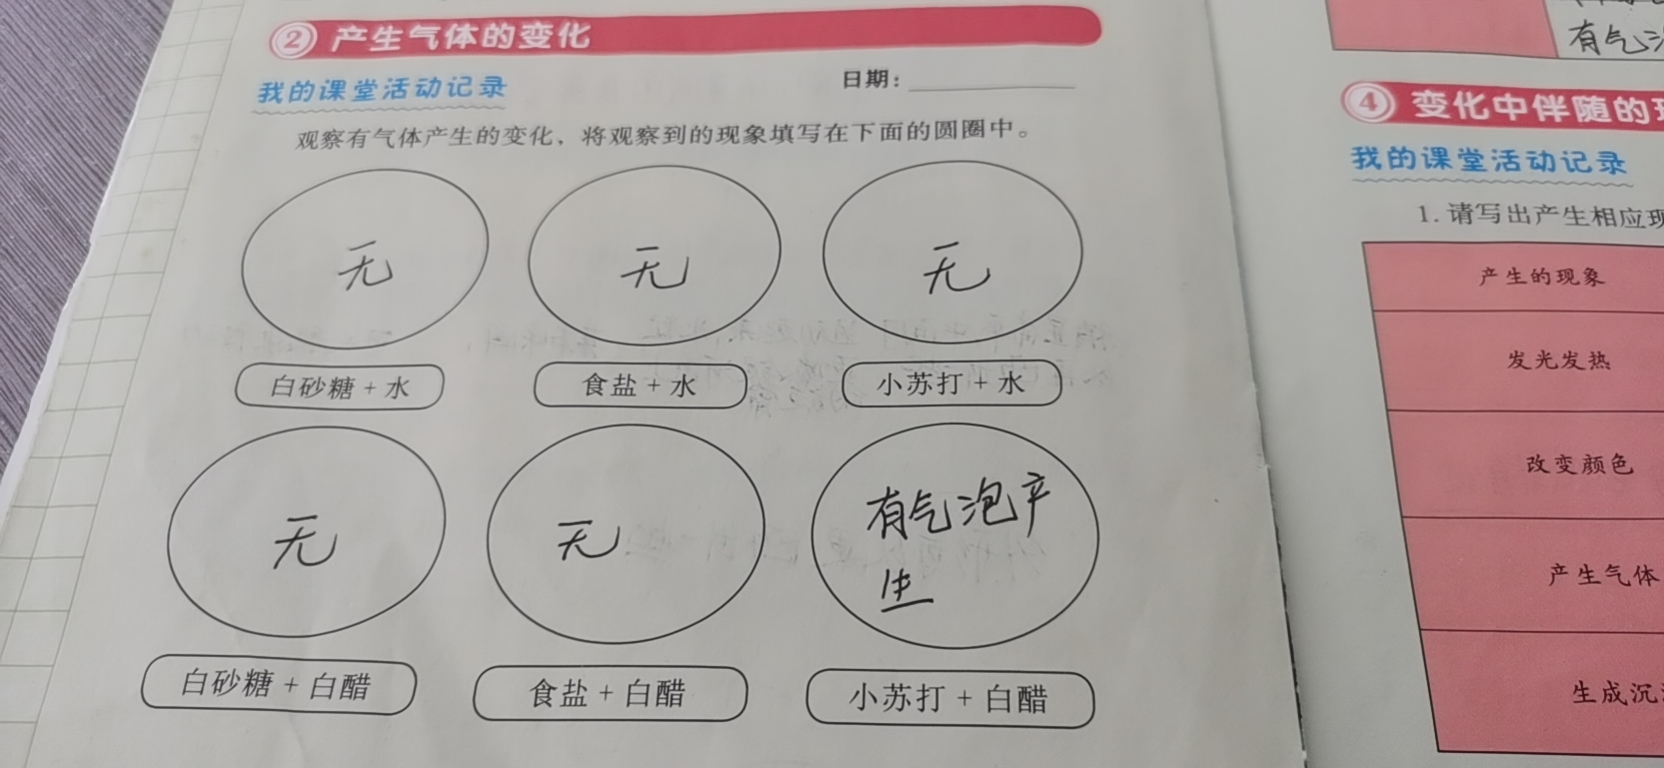 ② 产生气体的变化
我的课堂活动记录
日期：
观察有气体产生的变化，将观察到的现象填写在下面的圆圈中。
无
无
无
白砂糖 + 水
食盐 + 水
小苏打 + 水
无
无
有气泡产
生
白砂糖 + 白醋
食盐 + 白醋
小苏打 + 白醋
有气
④ 变化中伴随的
我的课堂活动记录
1. 请写出产生相应
产生的现象
发光发热
改变颜色
产生气体
生成沉